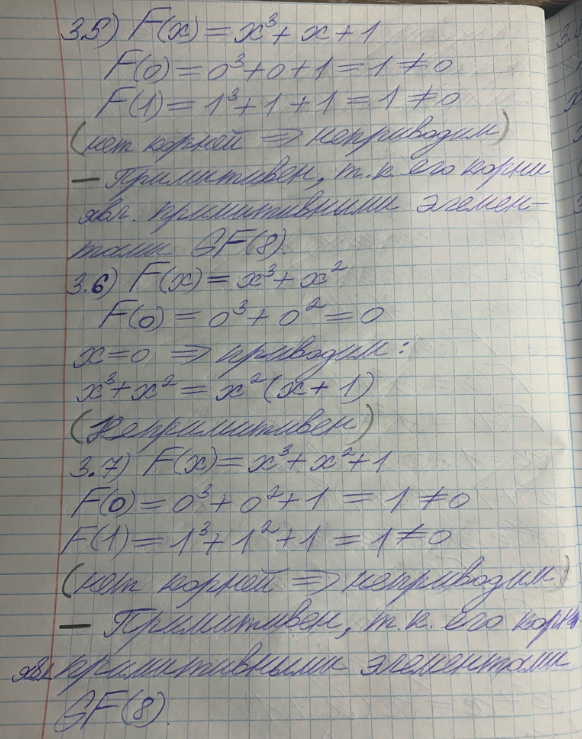 3.5) F(x) = x³ + x + 1
F(0) = 0³ + 0 + 1 = 1 ≠ 0
F(1) = 1³ + 1 + 1 = 1 ≠ 0
(нет корней ⇒ неприводим)
— Примитивен, т.к. его корни
явл. примитивными элемен-
тами GF(8).
3.6) F(x) = x³ + x²
F(0) = 0³ + 0² = 0
x = 0 ⇒ приводим:
x³ + x² = x²(x + 1)
(Непримитивен)
3.7) F(x) = x³ + x² + 1
F(0) = 0³ + 0² + 1 = 1 ≠ 0
F(1) = 1³ + 1² + 1 = 1 ≠ 0
(нет корней ⇒ неприводим)
— Примитивен, т.к. его корни
явл. примитивными элементами
GF(8).